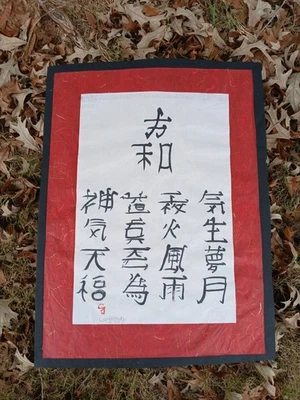 和
気生夢月
夜火風雨
真為
神気天福